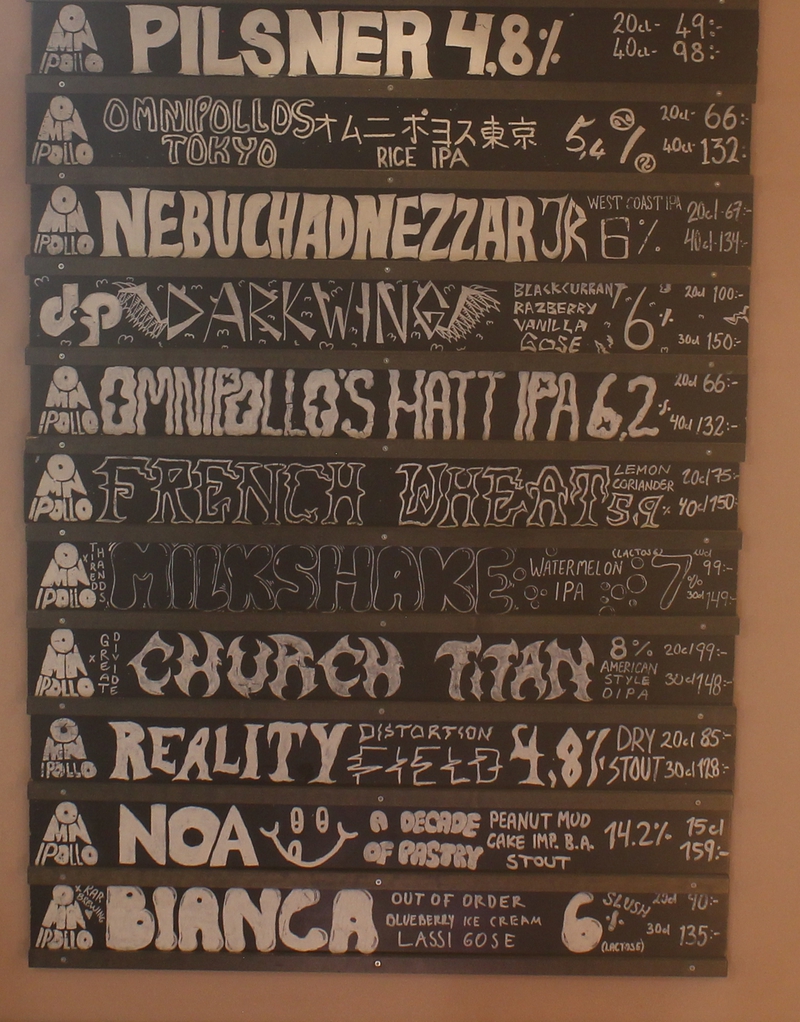 OMNIPOLLO PILSNER 4,8% 20cl- 49:-
40cl- 98:-
OMNIPOLLO OMNIPOLLOS オムニポヨス東京 5,4% 20cl- 66:-
TOKYO RICE IPA 40cl- 132:-
OMNIPOLLO NEBUCHADNEZZAR JR WEST COAST IPA 20cl-67:-
6% 40cl-134:-
dp DARKWING BLACKCURRANT 6% 20cl 100:-
RAZBERRY
VANILLA
GOSE 30cl 150:-
OMNIPOLLO OMNIPOLLO'S HATT IPA 6,2% 20cl 66:-
40cl/132:-
OMNIPOLLO FRENCH WHEAT LEMON 20cl/75:-
CORIANDER
5,9% 40cl/150:-
OMNIPOLLO x TIRED HANDS MILKSHAKE WATERMELON (LACTOSE) 7% 20cl 99:-
IPA 30cl 149:-
OMNIPOLLO x GREAT DIVIDE CHURCH TITAN 8% 20cl/99:-
AMERICAN
STYLE 30cl 148:-
DIPA
OMNIPOLLO REALITY DISTORTION 4,8% DRY 20cl 85:-
FIELD STOUT 30cl 128:-
OMNIPOLLO NOA A DECADE PEANUT MUD 14.2% 15cl
OF PASTRY CAKE IMP. B.A. 159:-
STOUT
OMNIPOLLO x KAR BREWING BIANCA OUT OF ORDER 6% SLUSH 20cl 90:-
BLUEBERRY ICE CREAM
LASSI GOSE (LACTOSE) 30cl 135:-